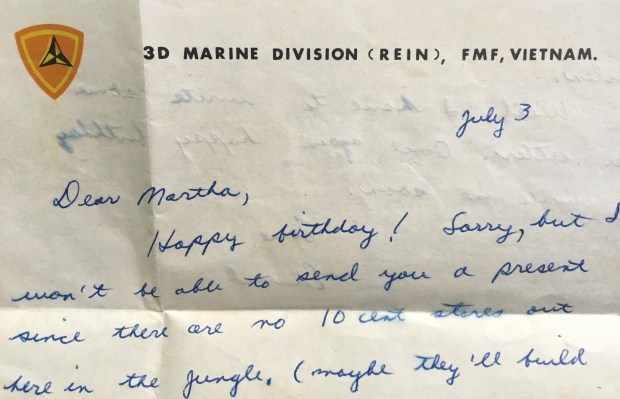 3D MARINE DIVISION (REIN), FMF, VIETNAM.
July 3
Dear Martha,
Happy birthday! Sorry, but I
won't be able to send you a present
since there are no 10 cent stores out
here in the jungle. (maybe they'll build